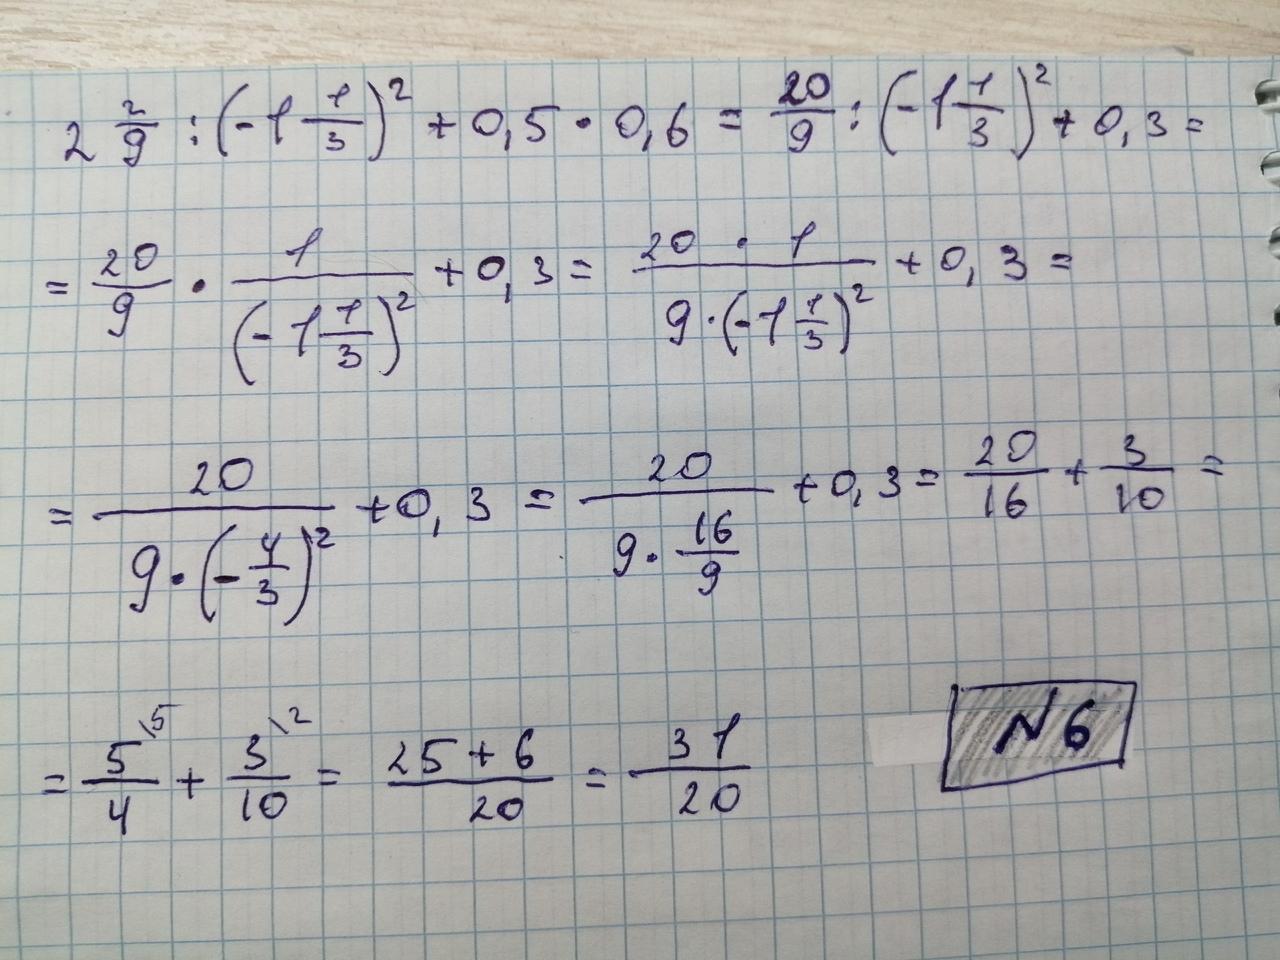 2 2/9 : (-1 1/3)² + 0,5 · 0,6 = 20/9 : (-1 1/3)² + 0,3 =
= 20/9 · 1/(-1 1/3)² + 0,3 = (20 · 1)/(9 · (-1 1/3)²) + 0,3 =
= 20/(9 · (-4/3)²) + 0,3 = 20/(9 · 16/9) + 0,3 = 20/16 + 3/10 =
= 5\5/4 + 3\2/10 = (25 + 6)/20 = 31/20
N6